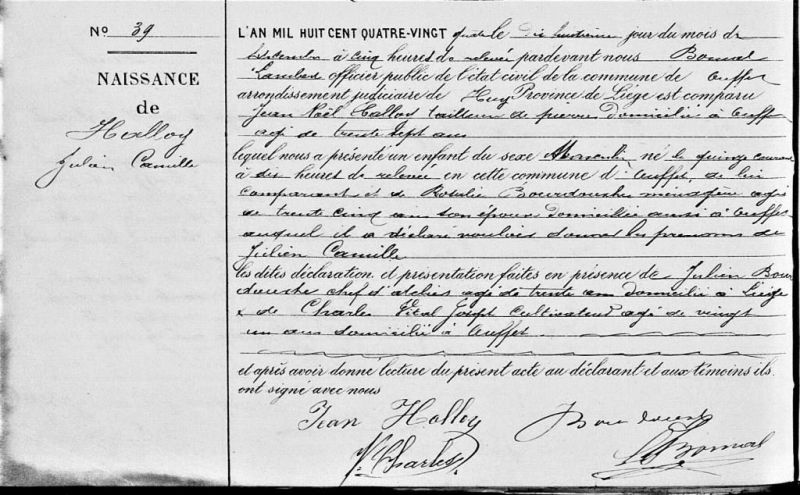 No 39
NAISSANCE
de
Halloy
Julien Camille
L'AN MIL HUIT CENT QUATRE-VINGT quatre le dix huitième jour du mois de
à cinq heures de relevée pardevant nous Bomal
Lambert officier public de l'état civil de la commune de Ouffet
arrondissement judiciaire de Huy Province de Liége est comparu
Jean Noël Halloy tailleur de pierres domicilié à Ouffet
agé de trente sept ans
lequel nous a présenté un enfant du sexe Masculin né le quinze courant
à dix heures de relevée en cette commune d'Ouffet, de lui
comparant et de Rosalie ménagère agée
de trente cinq ans son épouse domiciliée aussi à Ouffet
auquel il a déclaré vouloir donner les prénoms de
Julien Camille
les dites déclaration et présentation faites en présence de Julien
chef d'atelier agé de trente ans domicilié à Liége
& de Charles Vital Joseph Cultivateur agé de vingt
un ans domicilié à Ouffet
et après avoir donné lecture du présent acte au déclarant et aux témoins ils
ont signé avec nous
Jean Halloy
V. Charles
L Bomal